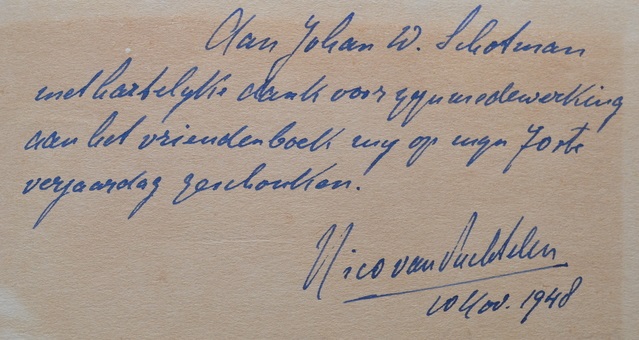 Aan Johan W. Schotman
met hartelijke dank voor zijn medewerking
aan het vriendenboek mij op mijn 70ste
verjaardag geschonken.
Nico van Suchtelen
10 Nov. 1948